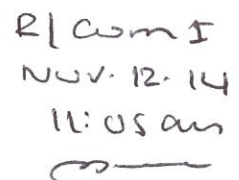 R/ Com I
Nov. 12. 14
11:05 am